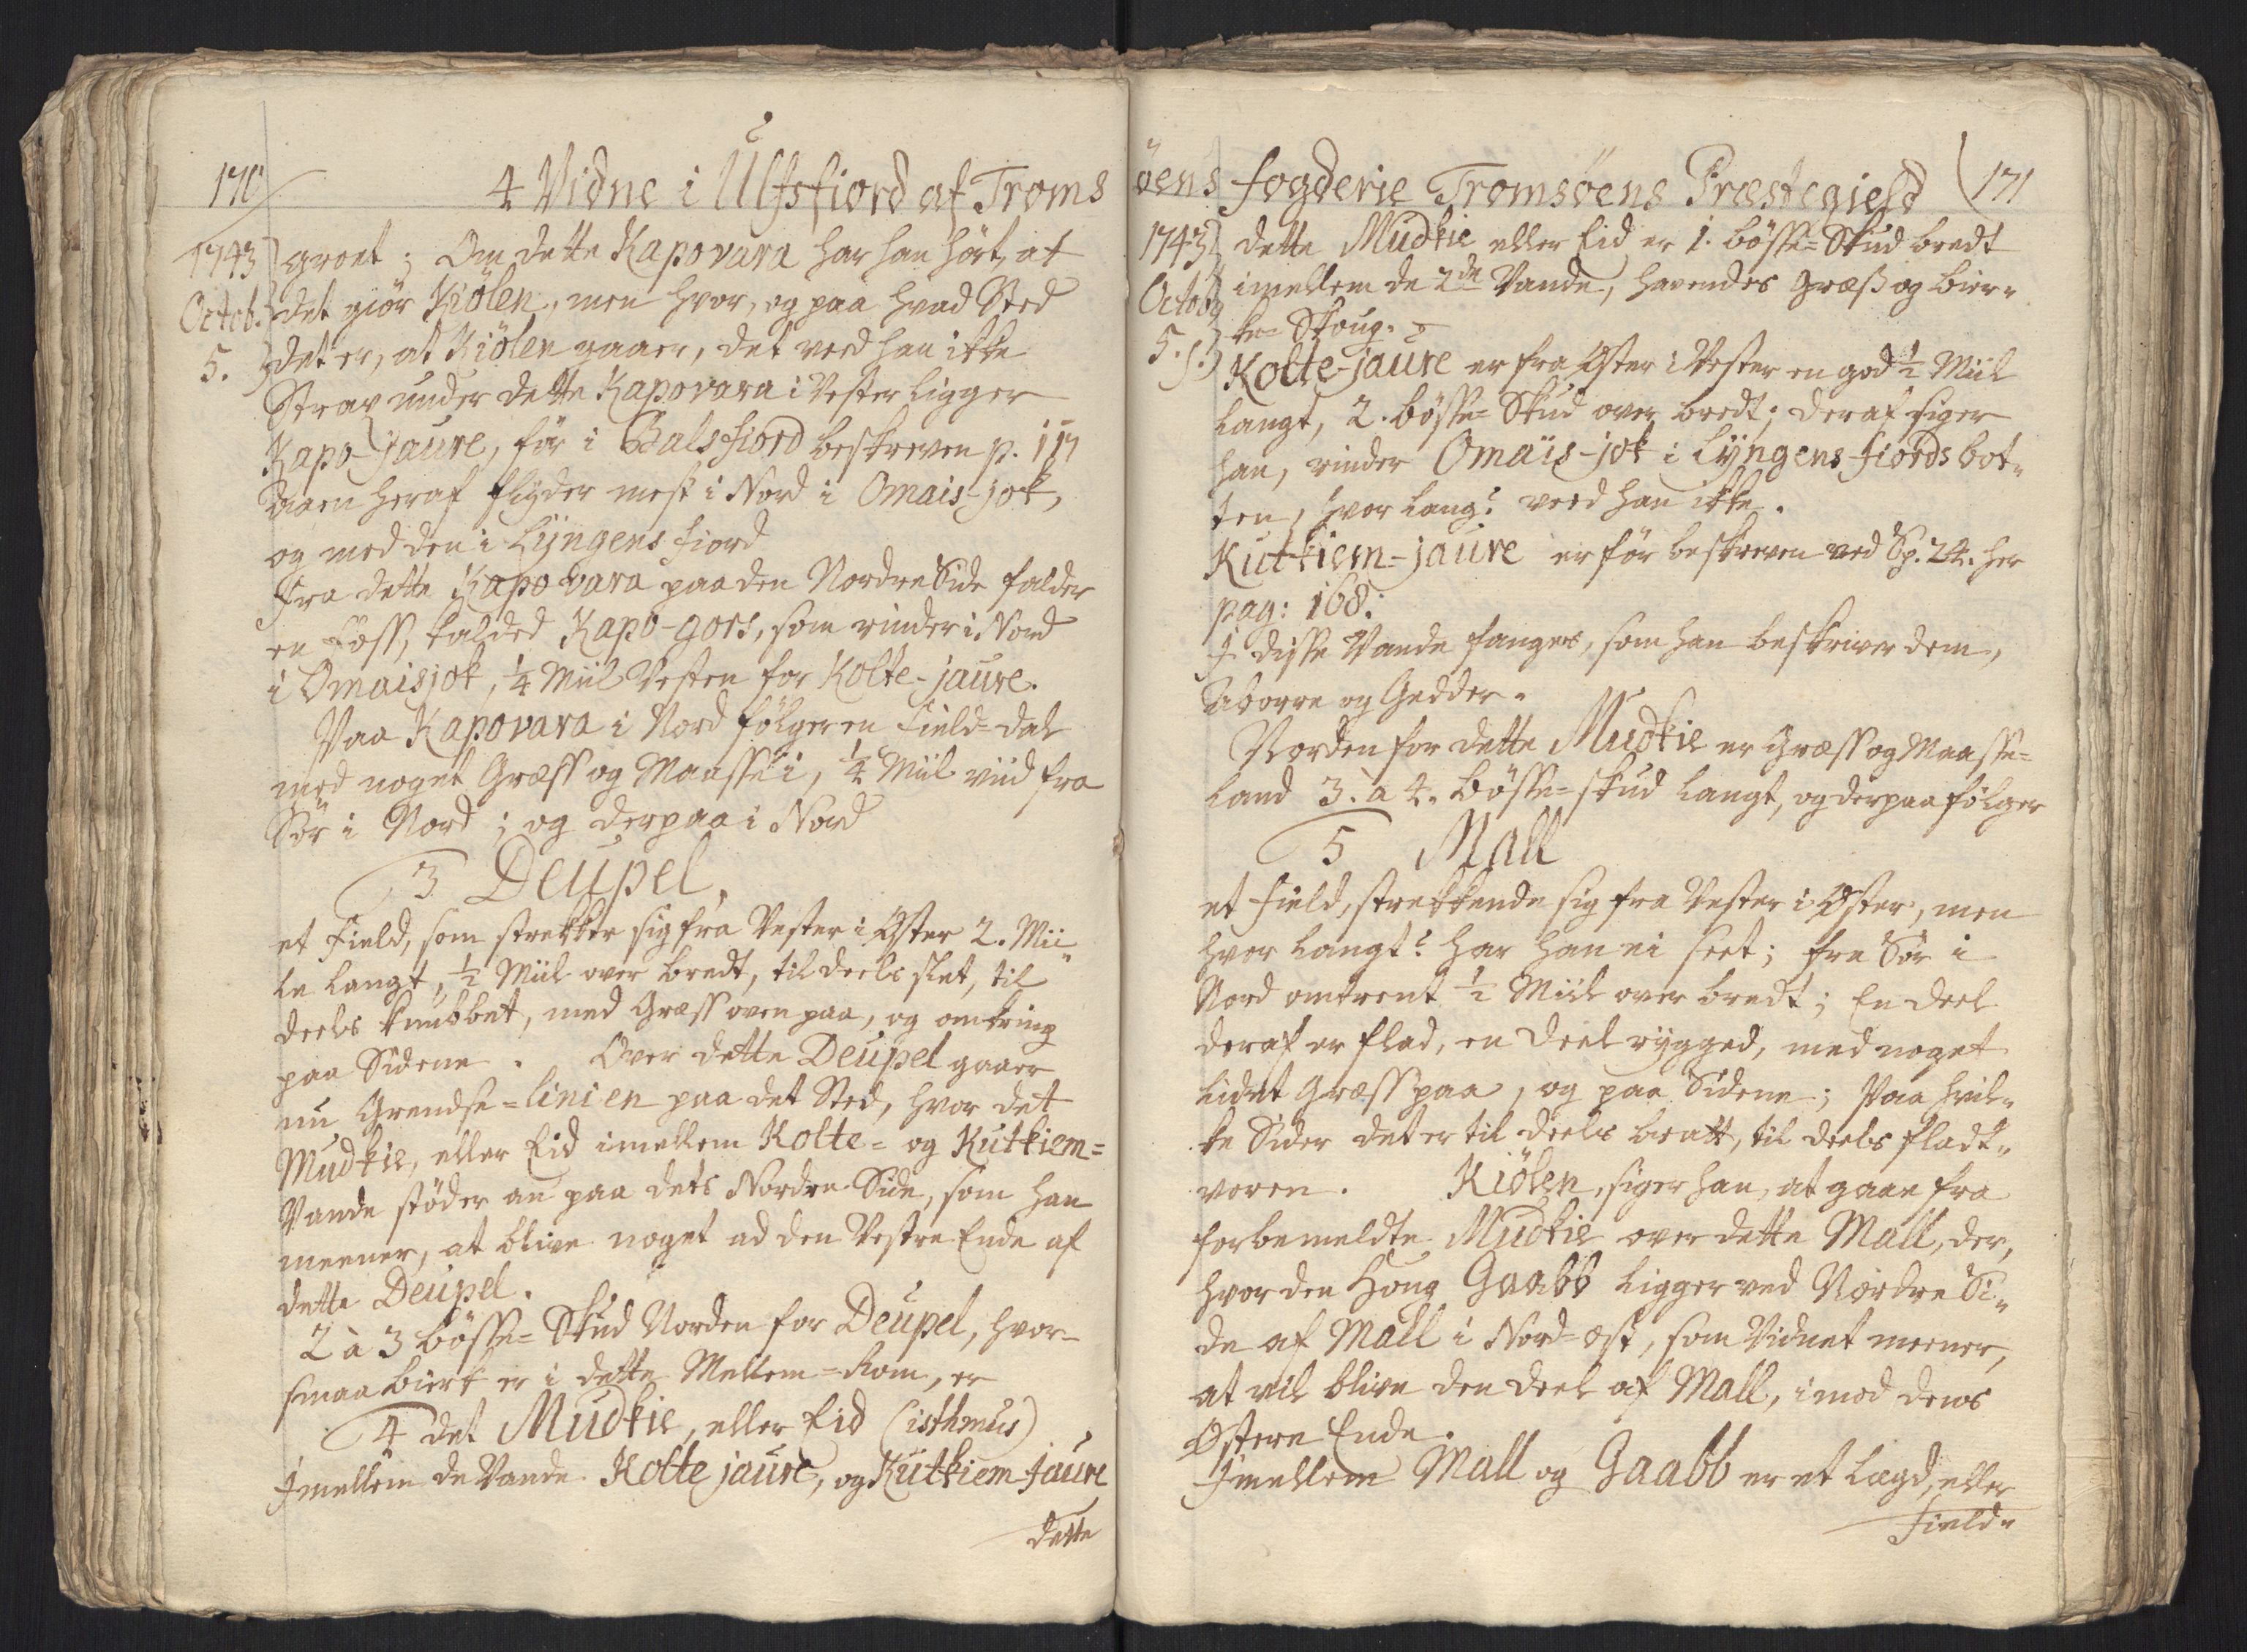 170
4 Vidne i Ulfsfiord af Troms
1743
Octob.
5.
groet; Om dette Kapovara har han hört, at
det giör Kiölen, men hvor, og paa hvad Sted
det er, at Kiölen gaaer, det veed han ikke
Strax under dette Kapovara i Vester ligger
Kapo-Jaure, för i Balsfiord beskreven p. 117
Aaen heraf flyder mest i Nord i Omais-jok,
og med den i Lyngens fiord
Fra dette Kapovara paa den Nordre Side falder
en Foss, kalded Kapo-gors, som rinder i Nord
i Omaisjok, 1/4 Miil Vesten for Kolte-jaure.
Paa Kapovara i Nord fölger en Field-dal
med noget Græss og Maasse i, 1/4 Miil viid fra
Sör i Nord; og derpaa i Nord
3 Deupel.
et Field, som strekker sig fra Vester i Öster 2. Mii„
le langt, 1/2 Miil over bredt, til deels slet, til
deels knubbet, med Græss oven paa, og omkring
paa Sidene. Over dette Deupel gaaer
nu Grendse-linien paa det Sted, hvor det
Mudkie, eller Eid imellem Kolte- og Kutkiem-
Vande stöder an paa dets Nordre Side, som han
meener, at blive noget ad den Vestre Ende af
dette Deupel.
2 à 3 bösse-Skud Norden for Deupel, hvor
smaa birk er i dette Mellem-Rom, er
4 det Mudkie, eller Eid (isthmus)
Imellem de Vande Kolte jaure, og Kutkiem-Jaure
dette
öens fogderie Tromsöens Præstegield
171
1743
Octob.
5.
dette Mudkie eller Eid er 1. bösse-Skud bredt
imellem de 2de Vande, havendes græs og bir„
ke-Skoug.
Kolte-jaure er fra Öster i Vester en god 1/2 Miil
langt, 2. bösse-Skud over bredt; deraf siger
han, rinder Omais-jok i Lyngens-fiords bot„
ten, hvor lang? veed han ikke.
Kutkiem-jaure er för beskreven ved Sp. 24. her
pag: 168.
I disse Vande fanges, som han beskriver dem,
Aborre og Gedder.
Norden for dette Mudkie er Græss og Maasse-
land 3. à 4. bösse-skud langt, og derpaa fölger
5 Mall
et Field, strekkende sig fra Vester i Öster, men
hvor langt? har han ei seet; fra Sör i
Nord omtrent 1/2 Miil over bredt; En deel
deraf er flad, en deel rygged, med noget
lidet Græss paa, og paa Sidene; Paa hvil„
ke Sider det er til deels bratt, til deels fladt„
voren. Kiölen, siger han, at gaae fra
forbemeldte Mudkie over dette Mall, der,
hvor den Houg Gaabb ligger ved Nordre Si„
de af Mall i Nord-ost, som Vidnet meener,
at vil blive den deel af Mall, imod dens
Östere Ende.
Imellem Mall og Gaabb er et lægd, eller
Field„